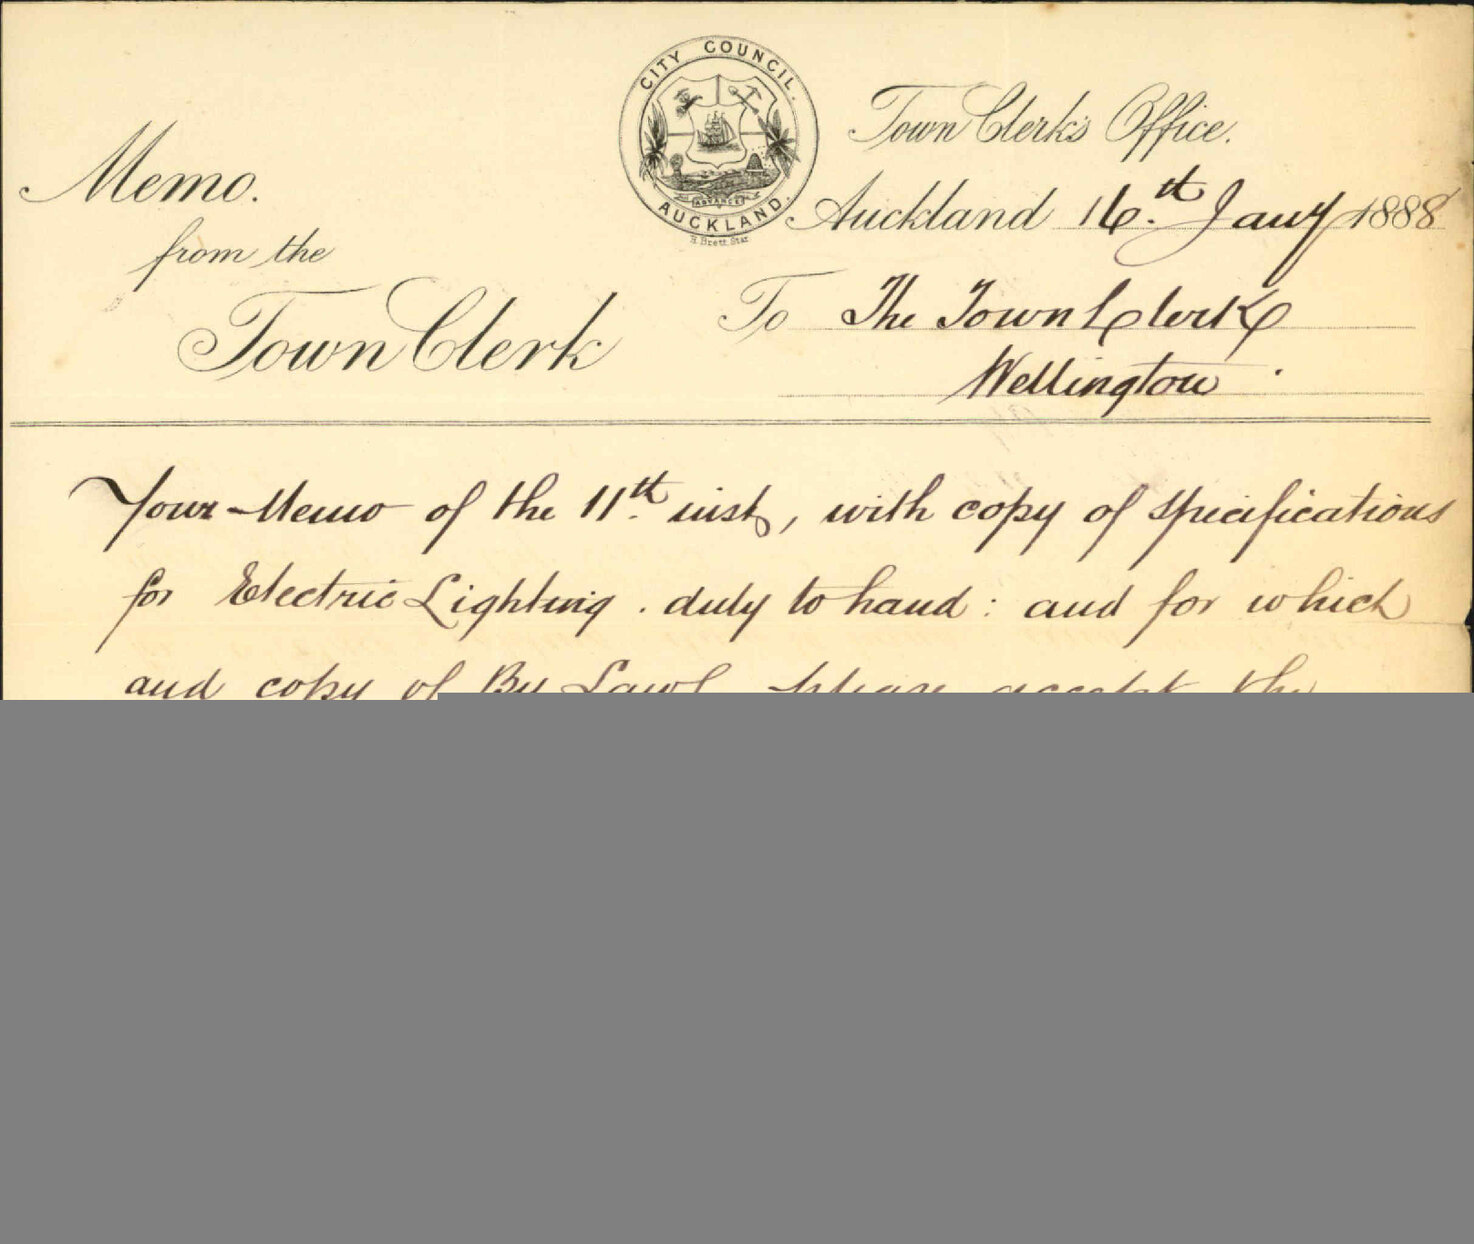 CITY COUNCIL.
AUCKLAND.
ADVANCE
H. Brett. Star
Town Clerk's Office.
Auckland 16.th Jany 1888
Memo.
from the
Town Clerk
To The Town Clerk
Wellington.
Your Memo of the 11.th inst, with copy of specifications
for Electric Lighting. duly to hand: and for which
and copy of By Laws please accept the